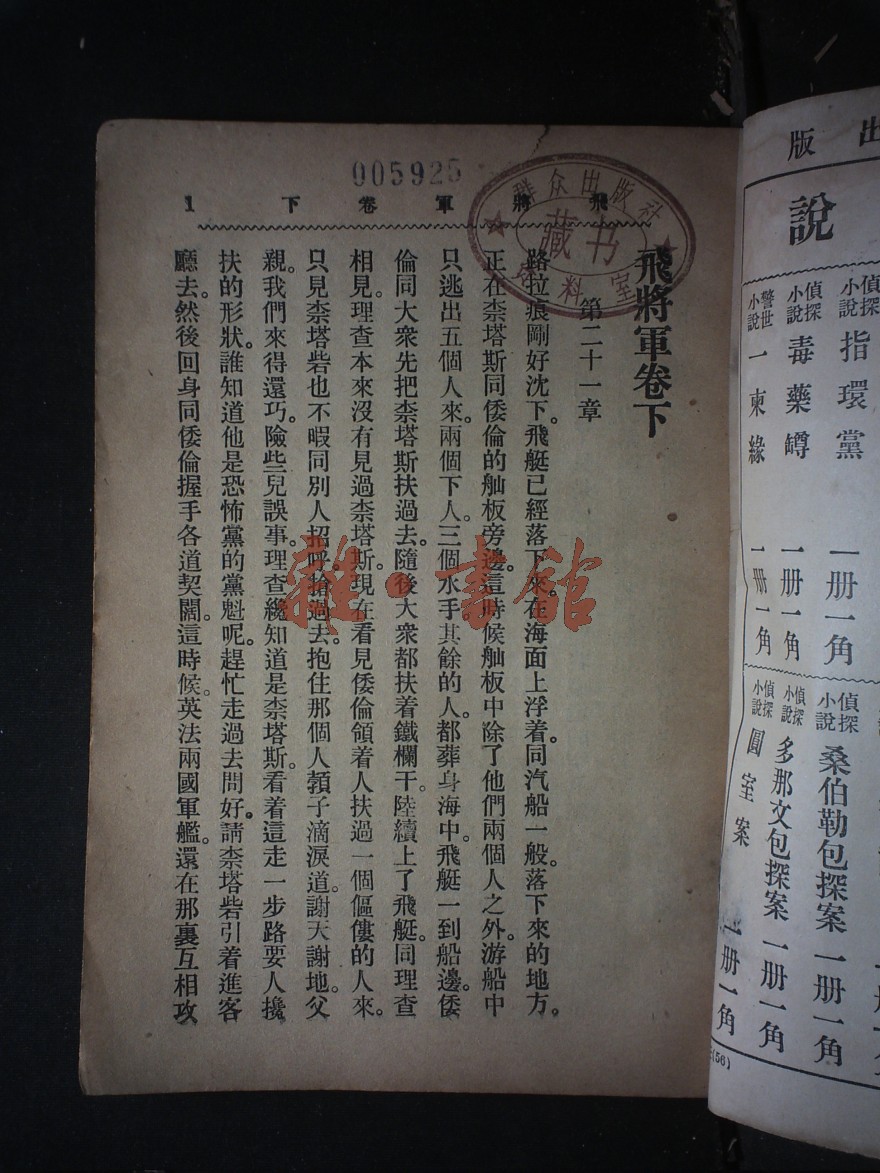 005925
飛將軍卷下 1
群众出版社
藏书
资料室
飛將軍卷下
第二十一章
路拉痕剛好沈下。飛艇已經落下來。在海面上浮着。同汽船一般。落下來的地方。
正在柰塔斯同倭倫的舢板旁邊。這時候舢板中除了他們兩個人之外。游船中
只逃出五個人來。兩個下人。三個水手。其餘的人。都葬身海中。飛艇一到船邊。倭
倫同大衆先把柰塔斯扶過去。隨後大衆都扶着鐵欄干。陸續上了飛艇。同理查
相見。理查本來沒有見過柰塔斯。現在看見倭倫領着人扶過一個傴僂的人來。
只見柰塔砦也不暇同別人招呼。搶過去。抱住那個人頸子滴淚道。謝天謝地。父
親。我們來得還巧。險些兒誤事。理查纔知道是柰塔斯。看着這走一步路要人攙
扶的形狀。誰知道他是恐怖黨的黨魁呢。趕忙走過去問好。請柰塔砦引着進客
廳去。然後回身同倭倫握手各道契闊。這時候。英法兩國軍艦。還在那裏互相攻
雜·書館
出版
說
偵探小說 指環黨 一册一角
偵探小說 毒藥罇 一册一角
警世小說 一柬緣 一册一角
偵探小說 桑伯勒包探案 一册一角
偵探小說 多那文包探案 一册一角
偵探小說 圓室案 一册一角
(56)